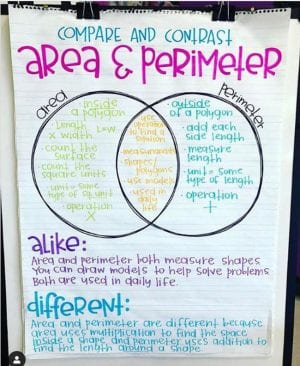 COMPARE AND CONTRAST
AREA & PERIMETER
area
Perimeter
· inside
a polygon
Length L×W
x width
· count the
surface
· count the
square units
· unit = some
type of sq. unit
· operation
X
use
operations
to find a
solution
measurement
shapes/
polygons
use models
used in
daily
life
· outside
of a polygon
· add each
side length
· measure
length
· unit = some
type of length
· operation
+
alike:
Area and perimeter both measure shapes
You can draw models to help solve problems
Both are used in daily life.
different:
Area and perimeter are different because
area uses multiplication to find the space
inside a shape, and perimeter uses addition to
find the length around a shape.